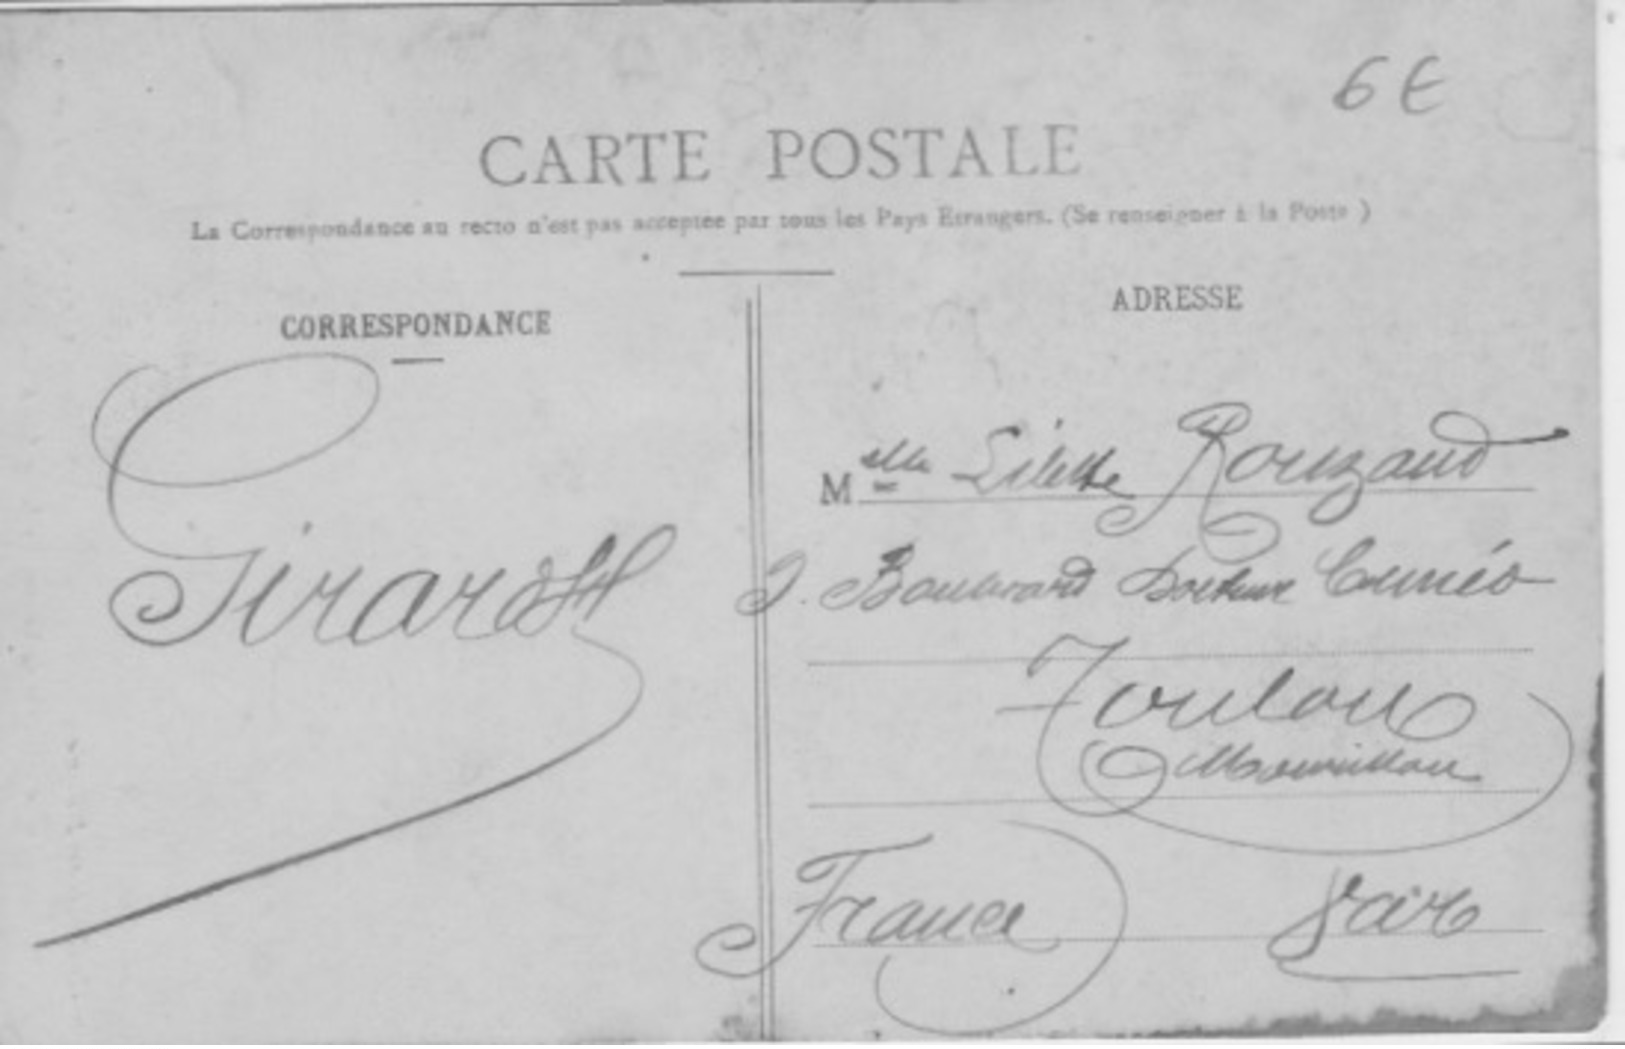 6 €
CARTE POSTALE
La Correspondance au recto n'est pas acceptée par tous les Pays Etrangers. (Se renseigner à la Poste)
CORRESPONDANCE
Girardot
ADRESSE
Melle Rouzaud
Boulevard Docteur Cunéo
Toulon
Mourillon
France Var